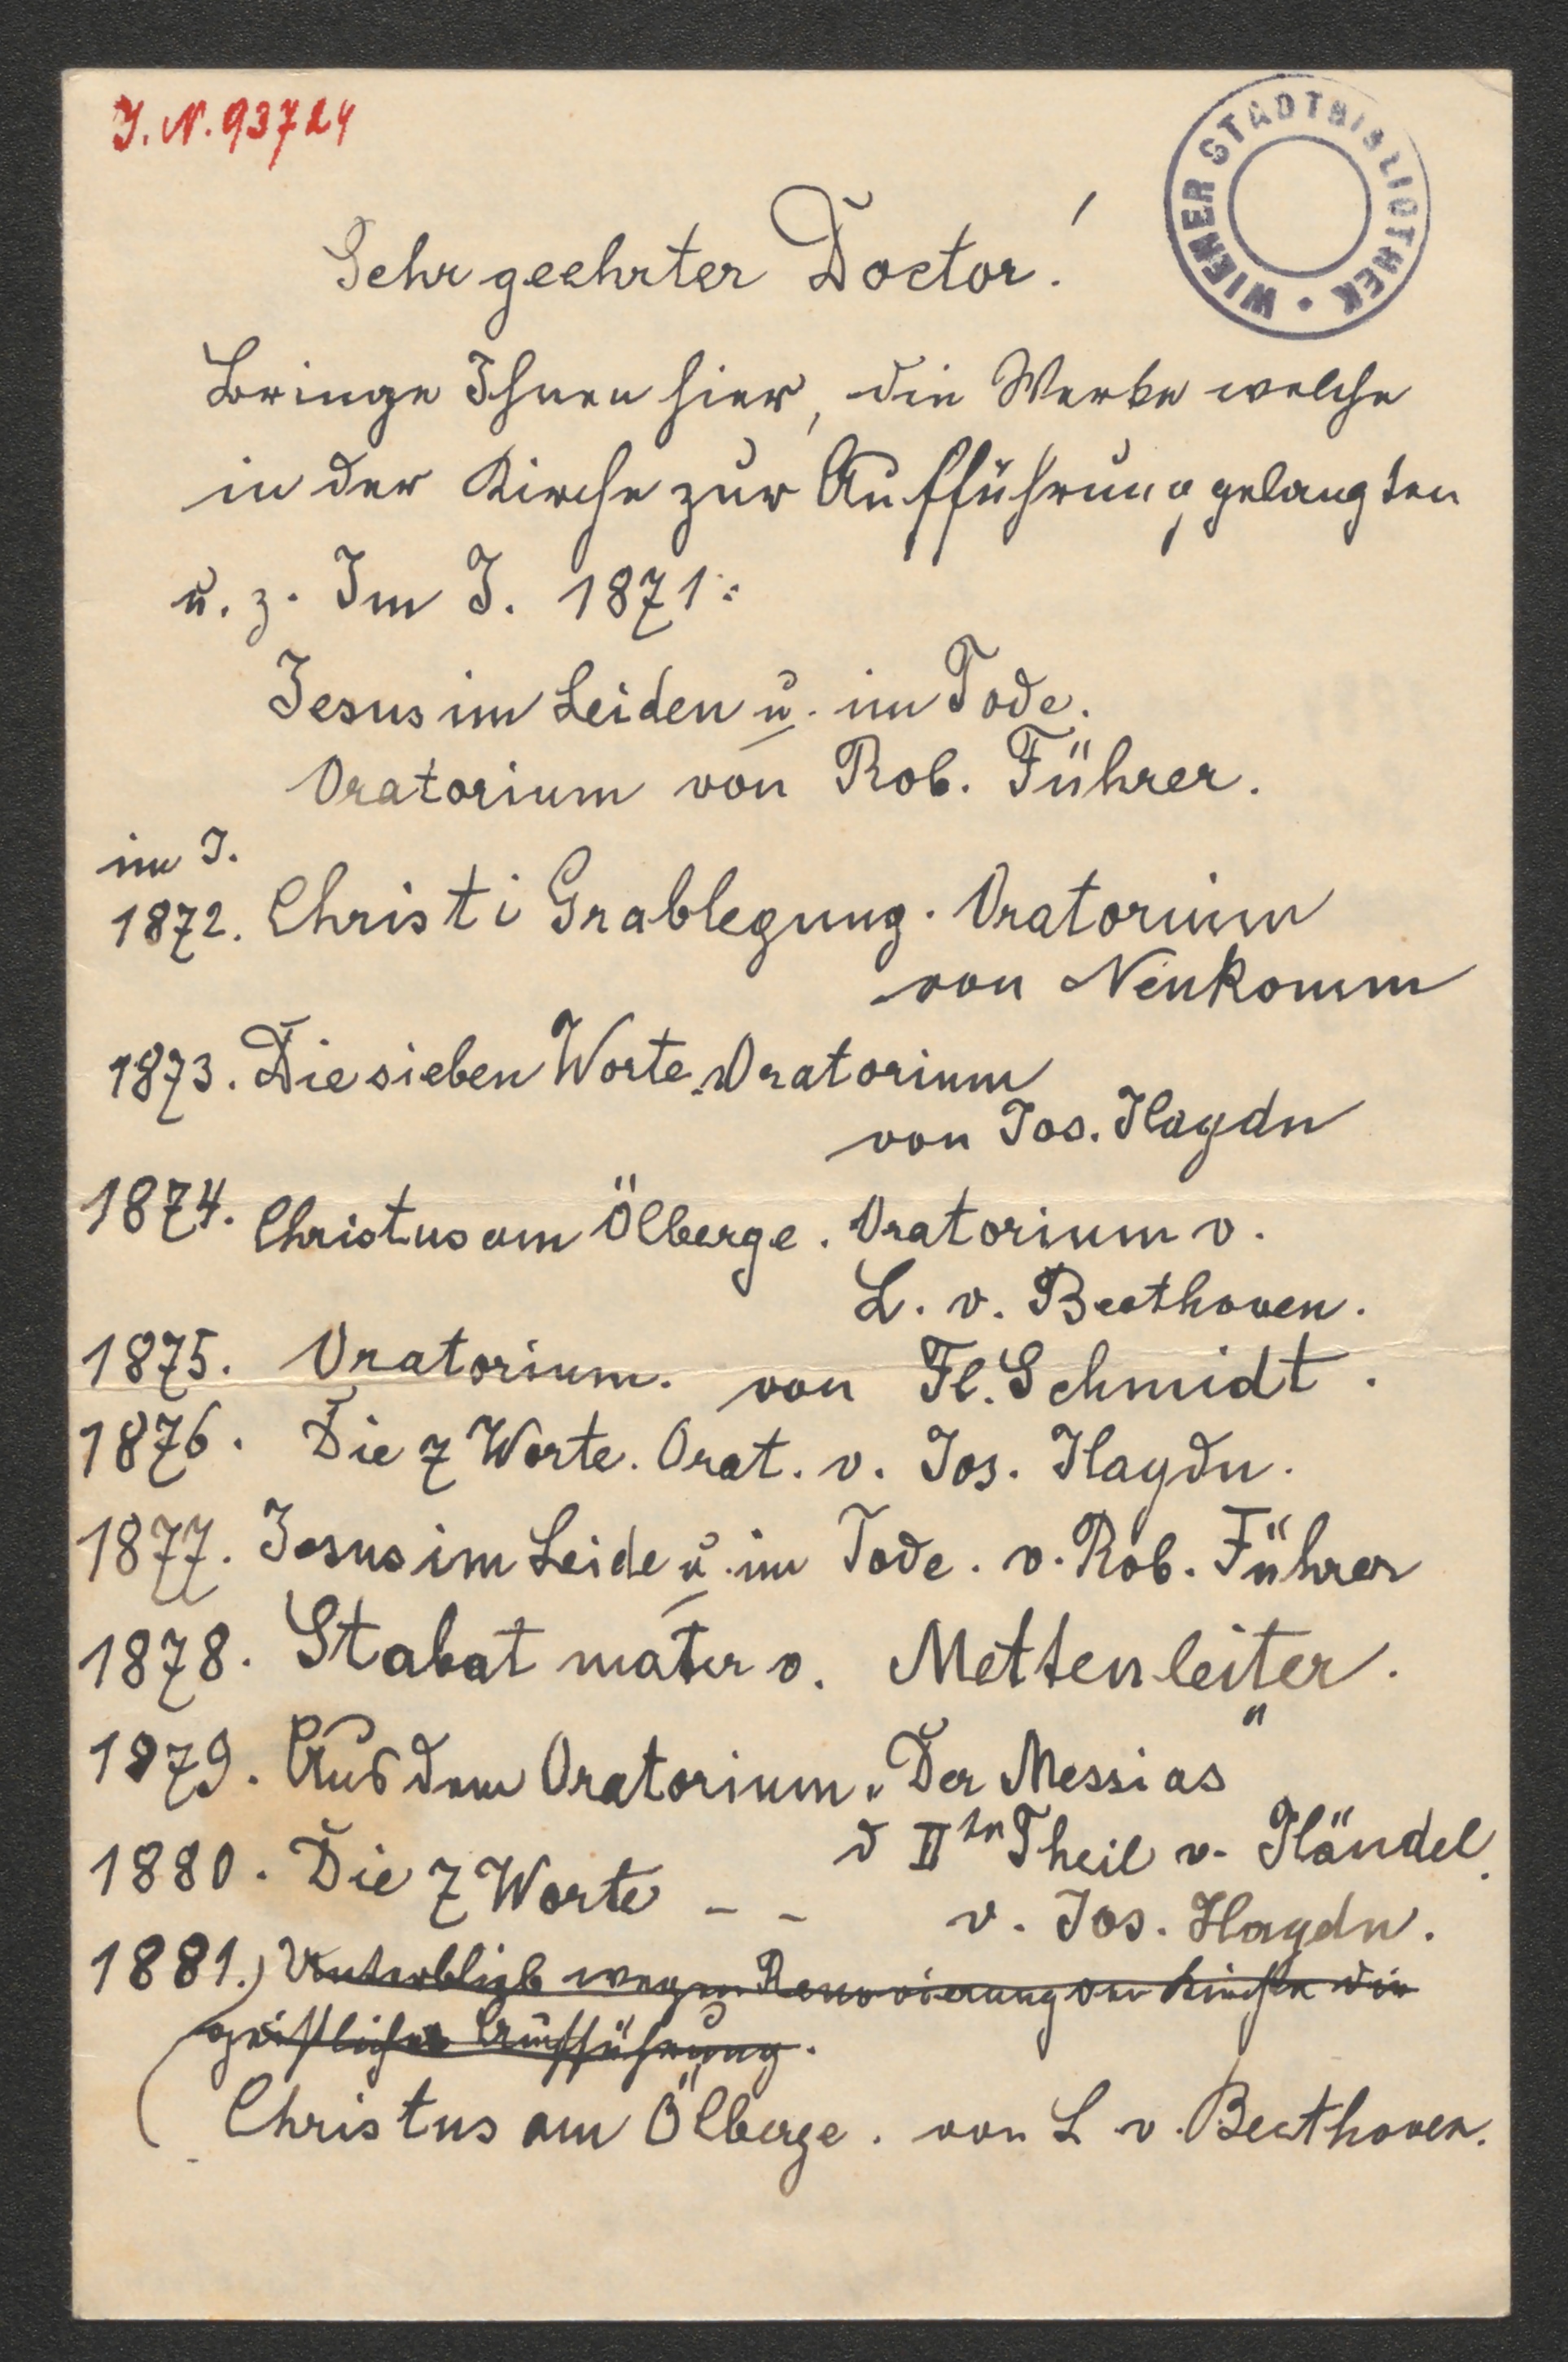 J. N. 93724
WIENER STADTBIBLIOTHEK •
Sehr geehrter Doctor!
Bringe Ihnen hier, die Werke welche
in der Kirche zur Aufführung gelangten
u. z. Im J. 1871:
Jesus im Leiden u. im Tode.
Oratorium von Rob. Führer.
im J.
1872. Christi Grablegung. Oratorium
von Neukomm
1873. Die sieben Worte. Oratorium
von Jos. Haydn
1874. Christus am Ölberge. Oratorium v.
L. v. Beethoven.
1875. Oratorium. von Fl. Schmidt.
1876. Die 7 Worte. Orat. v. Jos. Haydn.
1877. Jesus im Leide u. im Tode. v. Rob. Führer
1878. Stabat mater v. Mettenleiter.
1879. Aus dem Oratorium „Der Messias"
d IItn Theil v. Händel.
1880. Die 7 Worte – – v. Jos. Haydn.
1881.) Unterblieb wegen Renovierung der Kirche die
geistliche Aufführung.
( Christus am Ölberge. von L v. Beethoven.